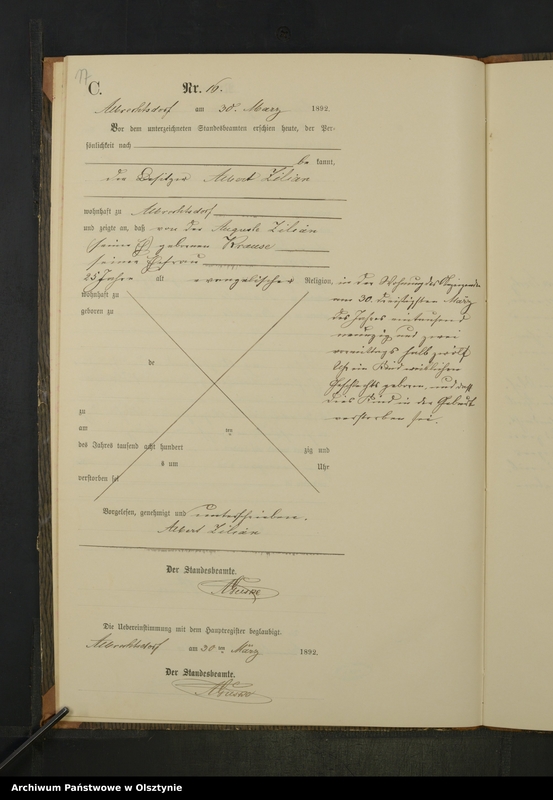 17
C.
Nr. 16.
Albrechtsdorf am 30. März 1892.
Vor dem unterzeichneten Standesbeamten erschien heute, der Per-
sönlichkeit nach
be kannt,
der Besitzer Albert Zilian
wohnhaft zu Albrechtsdorf
und zeigte an, daß von der Auguste Zilian
geborenen Krause
seiner Ehefrau
25 Jahre alt evangelischer Religion, in der Wohnung des Anzeigenden
am 30. dreißigsten März
des Jahres eintausend
neunzig und zwei
vormittags halb zwölf
Uhr ein Kind weiblichen
Geschlechts geboren und daß
dies Kind in der Geburt
verstorben sei.
wohnhaft zu
geboren zu
de
zu
am ten
des Jahres tausend acht hundert zig und
s um Uhr
verstorben sei
Vorgelesen, genehmigt und unterschrieben.
Albert Zilian
Der Standesbeamte.
Die Uebereinstimmung mit dem Hauptregister beglaubigt.
Albrechtsdorf am 30 ten März 1892.
Der Standesbeamte.
Archiwum Państwowe w Olsztynie